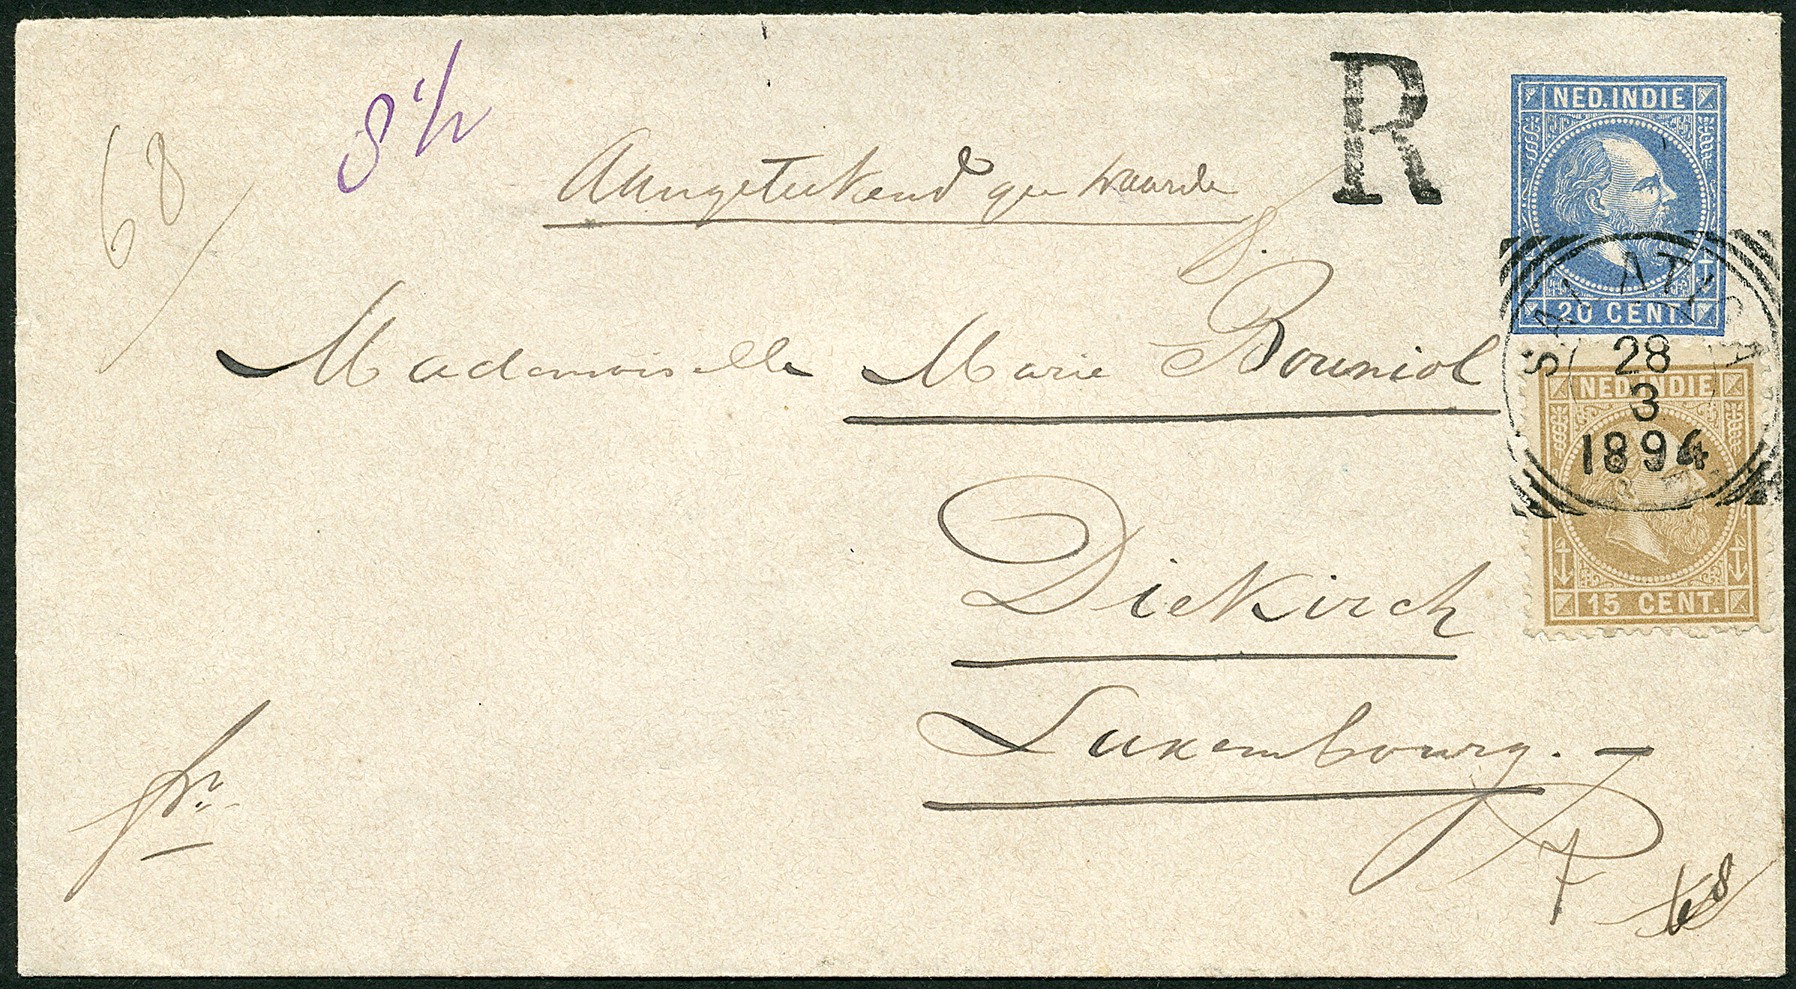 68
8 1/2
R
Aangeteekend gee waarde
NED.INDIE
20 CENT.
SALATIGA
28
3
1894
NED.INDIE
15 CENT.
Mademoiselle Marie Bouniol
Diekirch
Luxembourg. —
fr.
7
68